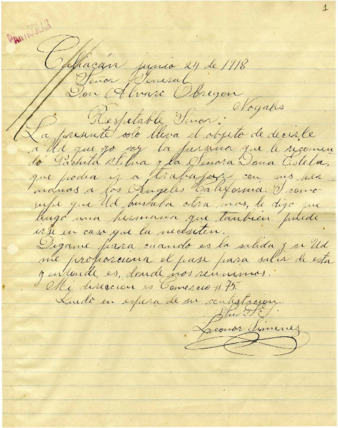 1
PARTICULAR
Culiacán junio 24 de 1918.
Señor General
Don Alvaro Obregon
Nogales
Respetable Señor:
La presente solo lleva el objeto de decirle
a Ud que yo soy la persona que le recomen
do Pachita y la Señora Doña Estela,
que podia ir a trabajar con mis
manos a los Angeles California. Y como
supe que Ud buscaba otra mas, le digo que
tengo una hermana que tambien puede
ir en caso que la necesiten.
Digame para cuando es la salida y si Ud
me proporciona el pase para salir de esta
y entiende es, donde nos reunimos:
Mi direccion es Comercio # 75
Quedo en espera de su contestacion
Leonor Jimenez